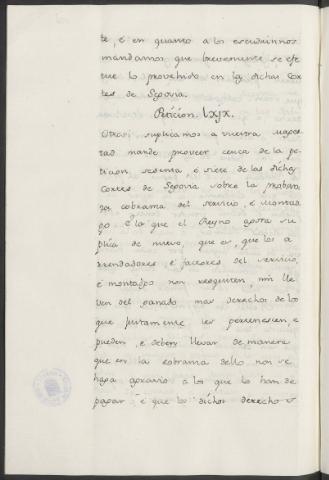 te, é en quanto a los escudriннos
mandamos que brevemente se efe
tue lo provehido en las dichas Cor
tes de Segovia.
Peticion LXIX.
Otrosi suplicamos a vuestra Mages
tad mande proveer cerca de la pe
ticion sesenta é siete de las dichas
Cortes de Segovia sobre la
cobranza del servicio, é montad
go é la que el Reyno agora su
plica de nuevo, que es, que los a
rrendadores é facedores del servicio,
é montadgo non requieran, nin lle
ven del ganado mas derechos de los
que justamente les pertenescen, e
pueden, é deben llevar de manera
que en la cobranza dello non se
haga agravio a los que lo han de
pagar é que los dichos derechos